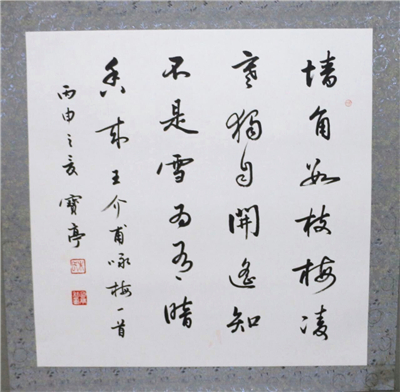 墙角数枝梅凌
寒獨自開遙知
不是雪为有暗
香来 王介甫咏梅一首
丙申之夏 寶亭